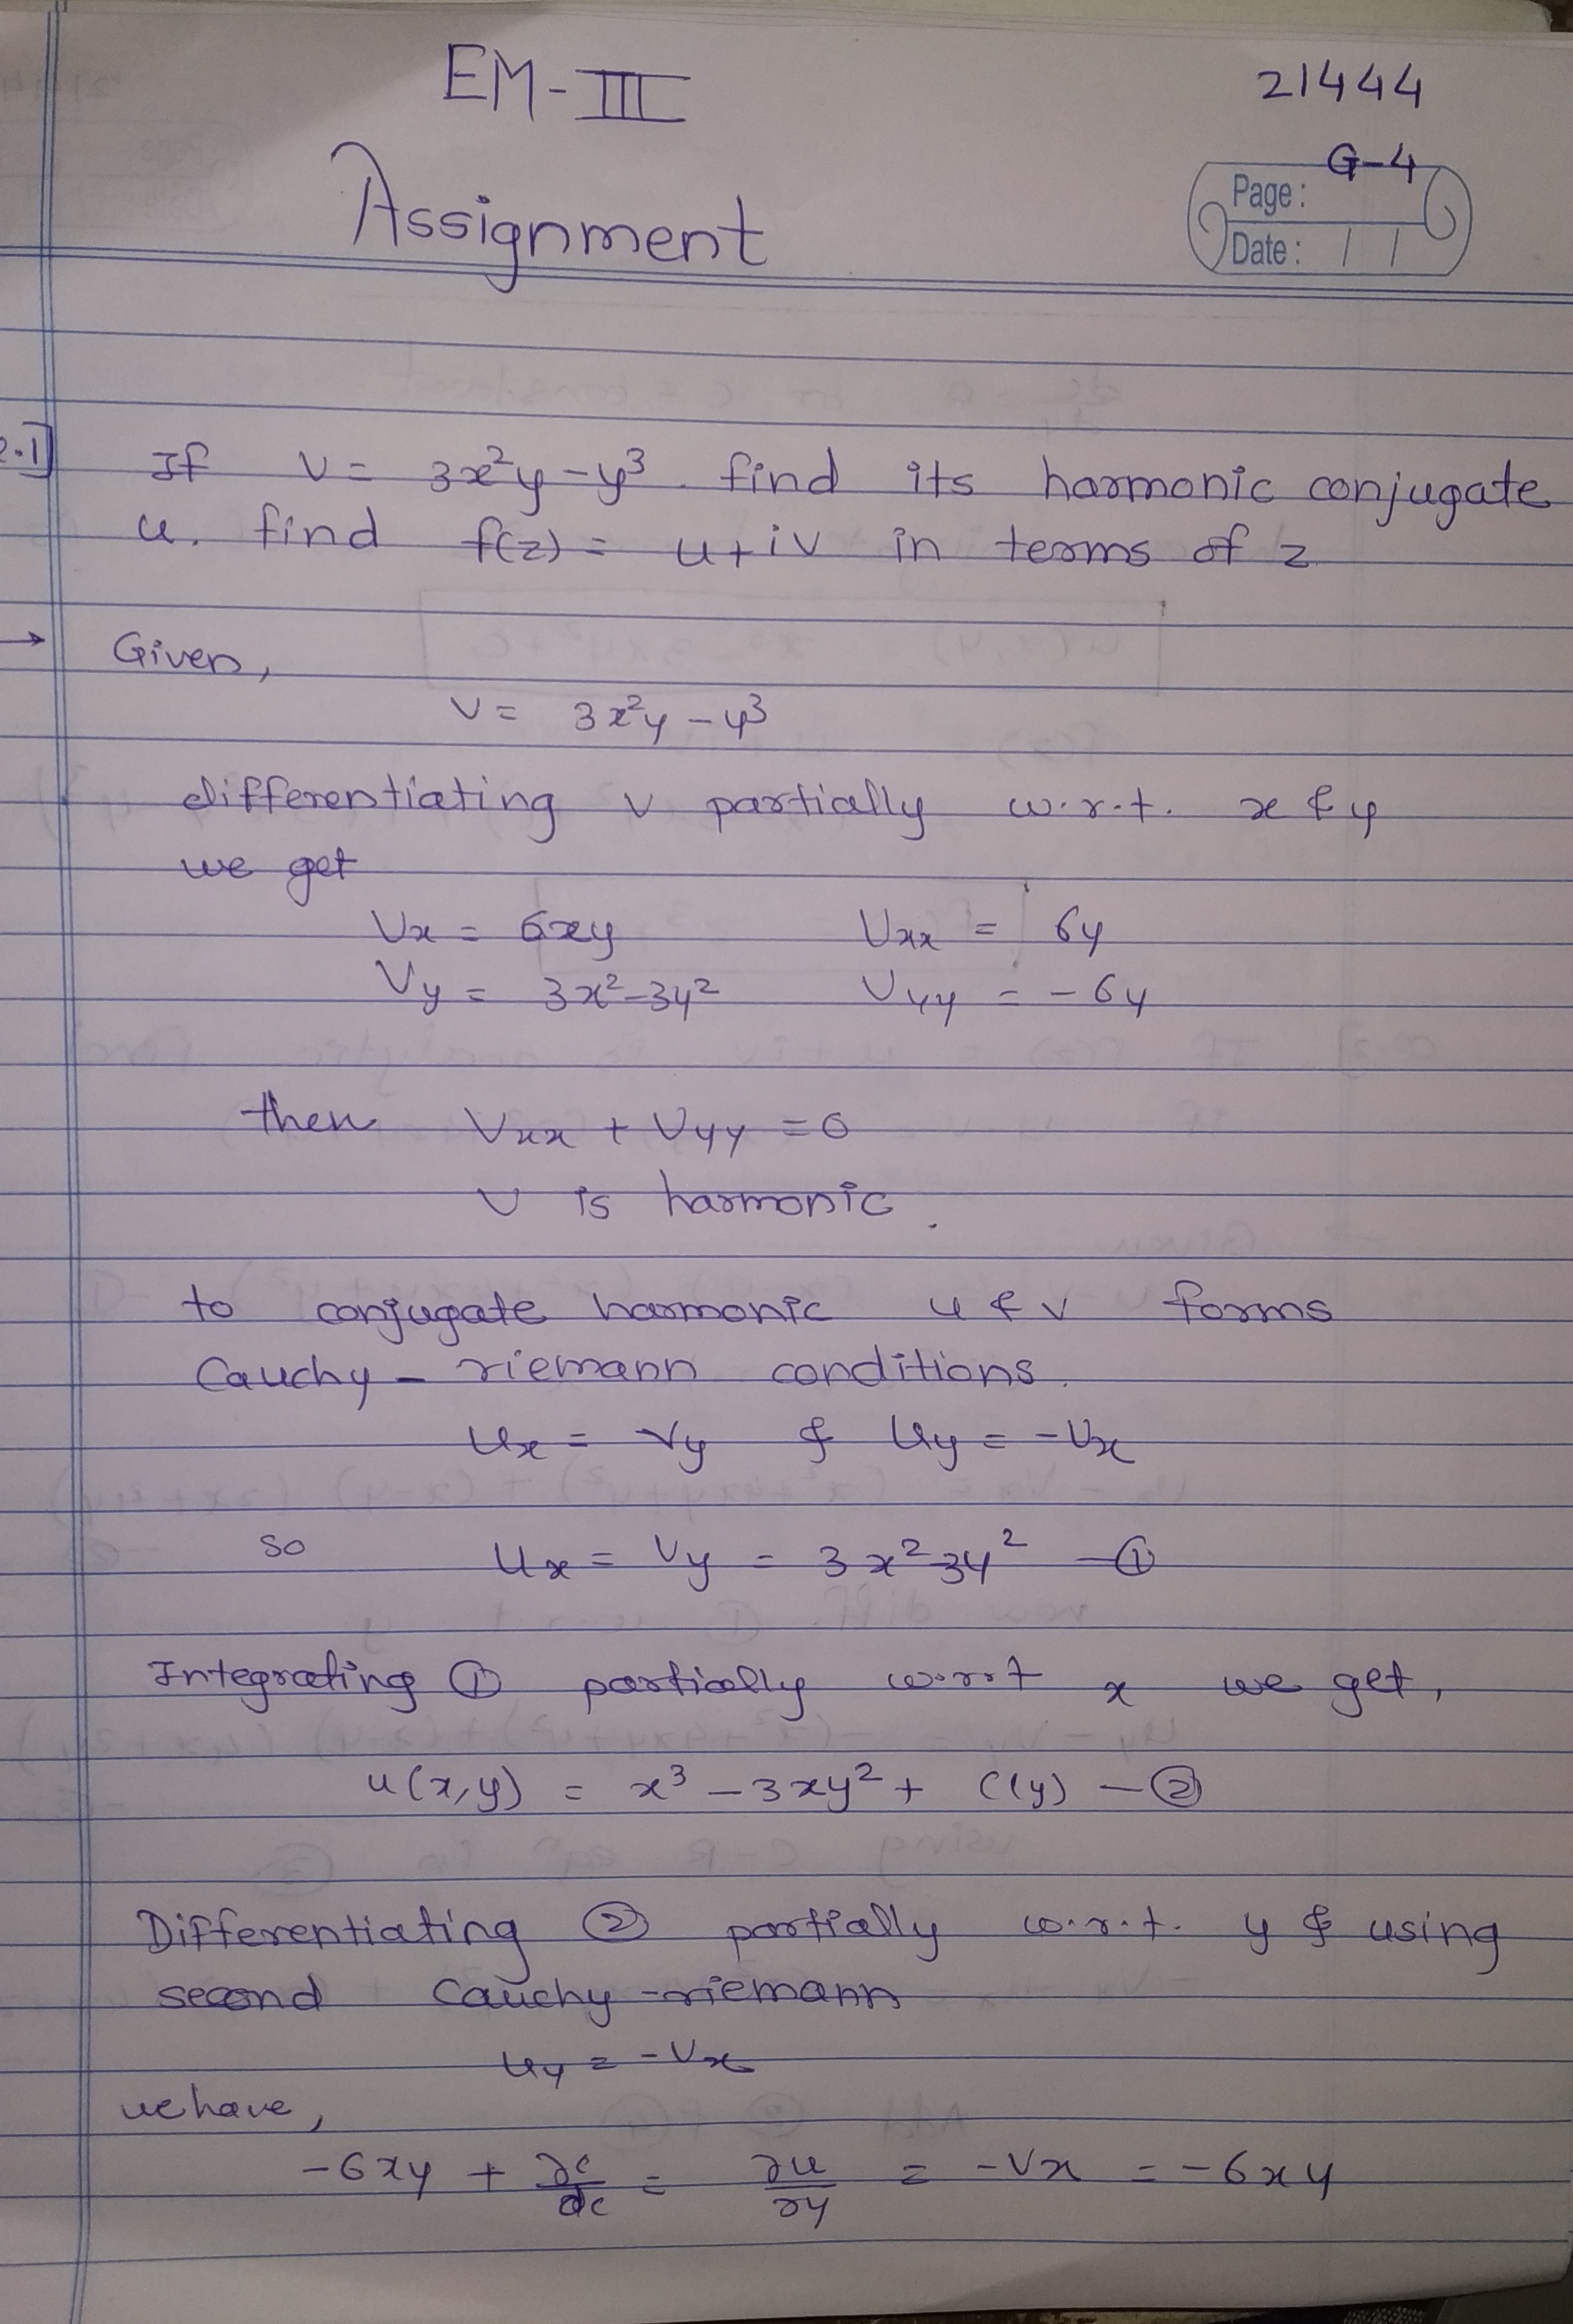 EM-III
21444
G-4
Assignment
Page:
Date: / /
Q.1] If v = 3x²y - y³. find its harmonic conjugate
u. find f(z) = u+iv in terms of z
→ Given,
v = 3x²y - y³
differentiating v partially w.r.t. x & y
we get
Vx = 6xy Vxx = 6y
Vy = 3x²-3y² Vyy = -6y
then Vxx + Vyy = 0
v is harmonic.
to conjugate harmonic u & v forms
Cauchy-riemann conditions.
Ux = Vy & Uy = -Vx
so Ux = Vy = 3x²-3y² -①
Integrating ① partially w.r.t x we get,
u(x,y) = x³ - 3xy² + C(y) -②
Differentiating ② partially w.r.t. y & using
second Cauchy-riemann
Uy = -Vx
we have,
-6xy + ∂c/dc = ∂u/∂y = -Vx = -6xy